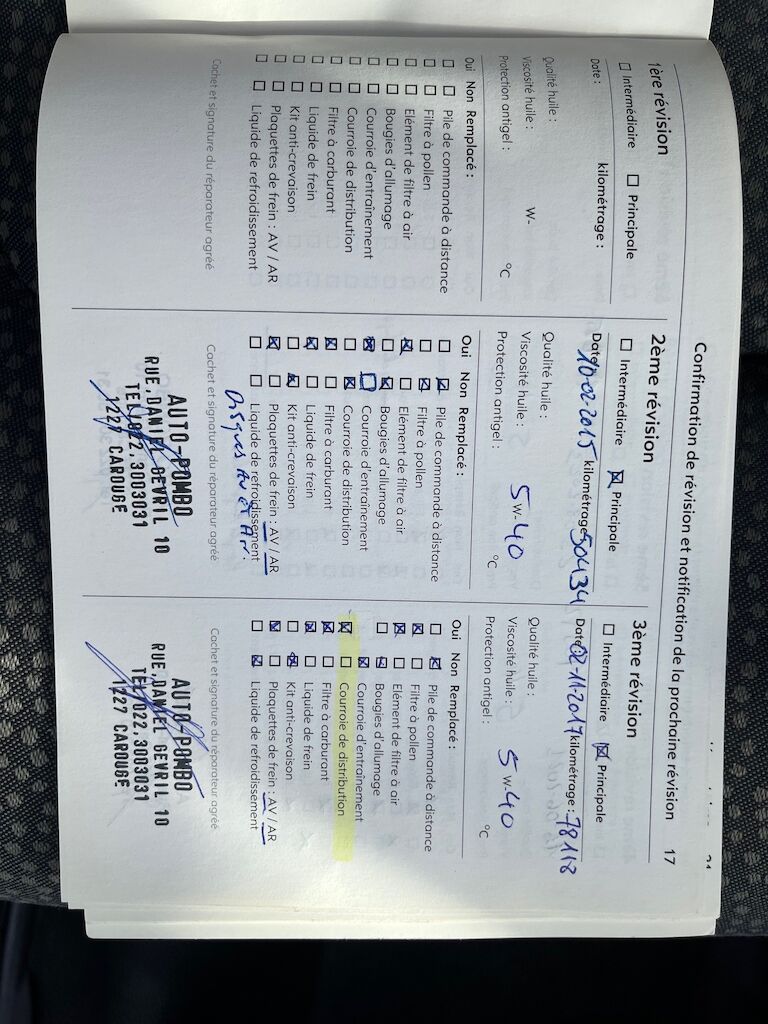 Confirmation de révision et notification de la prochaine révision 17
1ère révision
Intermédiaire Principale
Date : kilométrage :
Qualité huile :
Viscosité huile : W-
Protection antigel : °C
Oui Non Remplacé :
Pile de commande à distance
Filtre à pollen
Elément de filtre à air
Bougies d'allumage
Courroie d'entraînement
Courroie de distribution
Filtre à carburant
Liquide de frein
Kit anti-crevaison
Plaquettes de frein : AV / AR
Liquide de refroidissement
Cachet et signature du réparateur agréé
2ème révision
Intermédiaire Principale
Date 10-02-2015 kilométrage 50434
Qualité huile :
Viscosité huile : 5 W-40
Protection antigel : °C
Oui Non Remplacé :
Pile de commande à distance
Filtre à pollen
Elément de filtre à air
Bougies d'allumage
Courroie d'entraînement
Courroie de distribution
Filtre à carburant
Liquide de frein
Kit anti-crevaison
Plaquettes de frein : AV / AR
Liquide de refroidissement
Disques AV et AR.
Cachet et signature du réparateur agréé
AUTO-POMBO
RUE,DANIEL GEVRIL 10
TEL)022.3003031
1227 CAROUGE
3ème révision
Intermédiaire Principale
Date 02-11-2017 kilométrage : 78118
Qualité huile :
Viscosité huile : 5 W-40
Protection antigel : °C
Oui Non Remplacé :
Pile de commande à distance
Filtre à pollen
Elément de filtre à air
Bougies d'allumage
Courroie d'entraînement
Courroie de distribution
Filtre à carburant
Liquide de frein
Kit anti-crevaison
Plaquettes de frein : AV / AR
Liquide de refroidissement
Cachet et signature du réparateur agréé
AUTO-POMBO
RUE,DANIEL GEVRIL 10
TEL)022.3003031
1227 CAROUGE